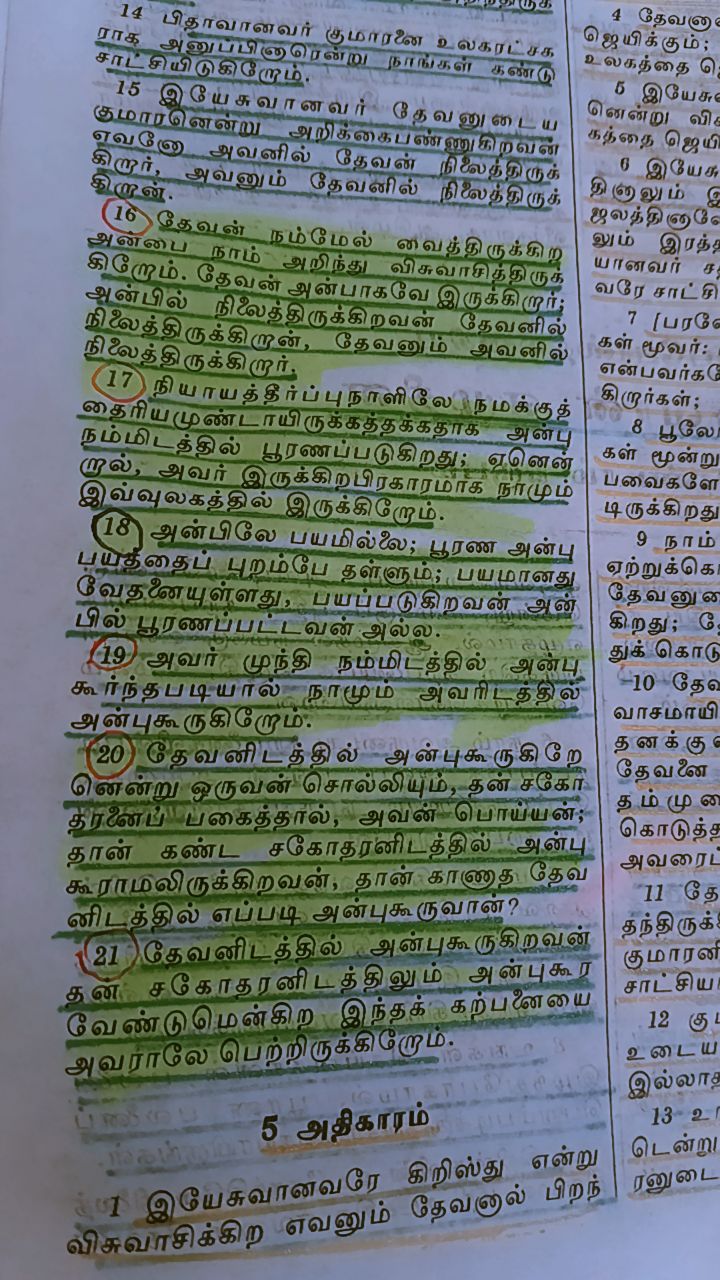 14 பிதாவானவர் குமாரனை உலகரட்சக
ராக அனுப்பினாரென்று நாங்கள் கண்டு
சாட்சியிடுகிறோம்.
15 இயேசுவானவர் தேவனுடைய
குமாரனென்று அறிக்கைபண்ணுகிறவன்
எவனோ அவனில் தேவன் நிலைத்திருக்
கிறார், அவனும் தேவனில் நிலைத்திருக்
கிறான்.
16 தேவன் நம்மேல் வைத்திருக்கிற
அன்பை நாம் அறிந்து விசுவாசித்திருக்
கிறோம். தேவன் அன்பாகவே இருக்கிறார்;
அன்பில் நிலைத்திருக்கிறவன் தேவனில்
நிலைத்திருக்கிறான், தேவனும் அவனில்
நிலைத்திருக்கிறார்.
17 நியாயத்தீர்ப்புநாளிலே நமக்குத்
தைரியமுண்டாயிருக்கத்தக்கதாக அன்பு
நம்மிடத்தில் பூரணப்படுகிறது; ஏனென்
றால், அவர் இருக்கிறபிரகாரமாக நாமும்
இவ்வுலகத்தில் இருக்கிறோம்.
18 அன்பிலே பயமில்லை; பூரண அன்பு
பயத்தைப் புறம்பே தள்ளும்; பயமானது
வேதனையுள்ளது, பயப்படுகிறவன் அன்
பில் பூரணப்பட்டவன் அல்ல.
19 அவர் முந்தி நம்மிடத்தில் அன்பு
கூர்ந்தபடியால் நாமும் அவரிடத்தில்
அன்புகூருகிறோம்.
20 தேவனிடத்தில் அன்புகூருகிறே
னென்று ஒருவன் சொல்லியும், தன் சகோ
தரனைப் பகைத்தால், அவன் பொய்யன்;
தான் கண்ட சகோதரனிடத்தில் அன்பு
கூராமலிருக்கிறவன், தான் காணாத தேவ
னிடத்தில் எப்படி அன்புகூருவான்?
21 தேவனிடத்தில் அன்புகூருகிறவன்
தன் சகோதரனிடத்திலும் அன்புகூர
வேண்டுமென்கிற இந்தக் கற்பனையை
அவராலே பெற்றிருக்கிறோம்.
5 அதிகாரம்
1 இயேசுவானவரே கிறிஸ்து என்று
விசுவாசிக்கிற எவனும் தேவனால் பிறந்
4
ஜெயிக்கும்;
உலகத்தை
5
னென்று
கத்தை
6
தினாலும்
லும்
யானவர்
வரே
7
கள் மூவர்:
கிறார்கள்;
8
கள்
டிருக்கிறது
9 நாம்
கிறது;
துக்
10
வாசமாயி
தேவனை
அவரைப்
11
12
உடைய
13
டென்று